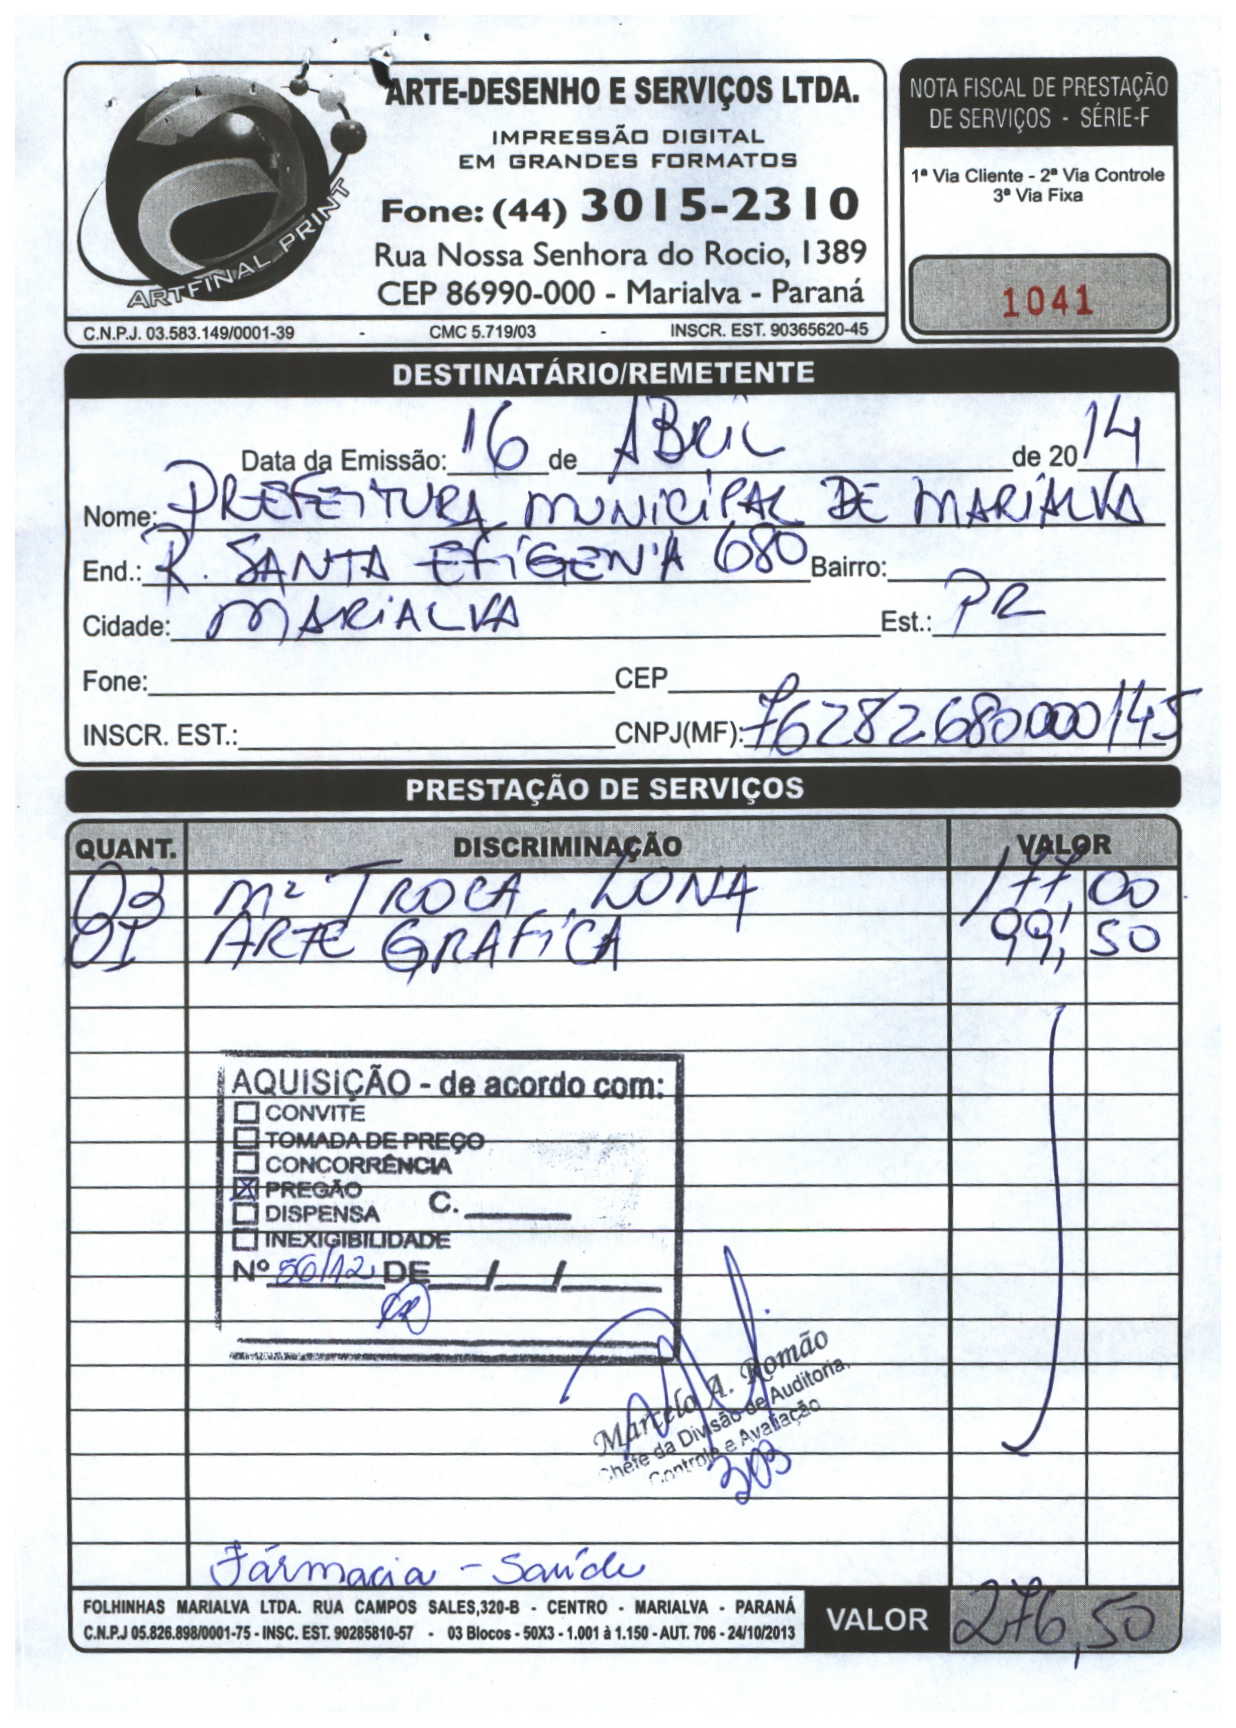 ARTE-DESENHO E SERVIÇOS LTDA.
IMPRESSÃO DIGITAL
EM GRANDES FORMATOS
Fone: (44) 3015-2310
Rua Nossa Senhora do Rocio, 1389
CEP 86990-000 - Marialva - Paraná
ARTFINAL PRINT
C.N.P.J. 03.583.149/0001-39 - CMC 5.719/03 - INSCR. EST. 90365620-45
NOTA FISCAL DE PRESTAÇÃO
DE SERVIÇOS - SÉRIE-F
1ª Via Cliente - 2ª Via Controle
3ª Via Fixa
1041
DESTINATÁRIO/REMETENTE
Data da Emissão: 16 de ABRIL de 2014
Nome: PREFEITURA MUNICIPAL DE MARIALVA
End.: R. SANTA EFIGENIA 680 Bairro:
Cidade: MARIALVA Est.: PR
Fone: CEP
INSCR. EST.: CNPJ(MF): 76282680000/145
PRESTAÇÃO DE SERVIÇOS
QUANT. DISCRIMINAÇÃO VALOR
03 M² TROCA LONA 177,00
01 ARTE GRAFICA 99,50
AQUISIÇÃO - de acordo com:
CONVITE
TOMADA DE PREÇO
CONCORRÊNCIA
PREGÃO
DISPENSA C.
INEXIGIBILIDADE
Nº 56/12 DE / /
Marcelo A. Romão
Chefe da Divisão de Auditoria,
Controle e Avaliação
303
Fármacia - Saúde
FOLHINHAS MARIALVA LTDA. RUA CAMPOS SALES,320-B - CENTRO - MARIALVA - PARANÁ
C.N.P.J 05.826.898/0001-75 - INSC. EST. 90285810-57 - 03 Blocos - 50X3 - 1.001 à 1.150 - AUT. 706 - 24/10/2013
VALOR 276,50